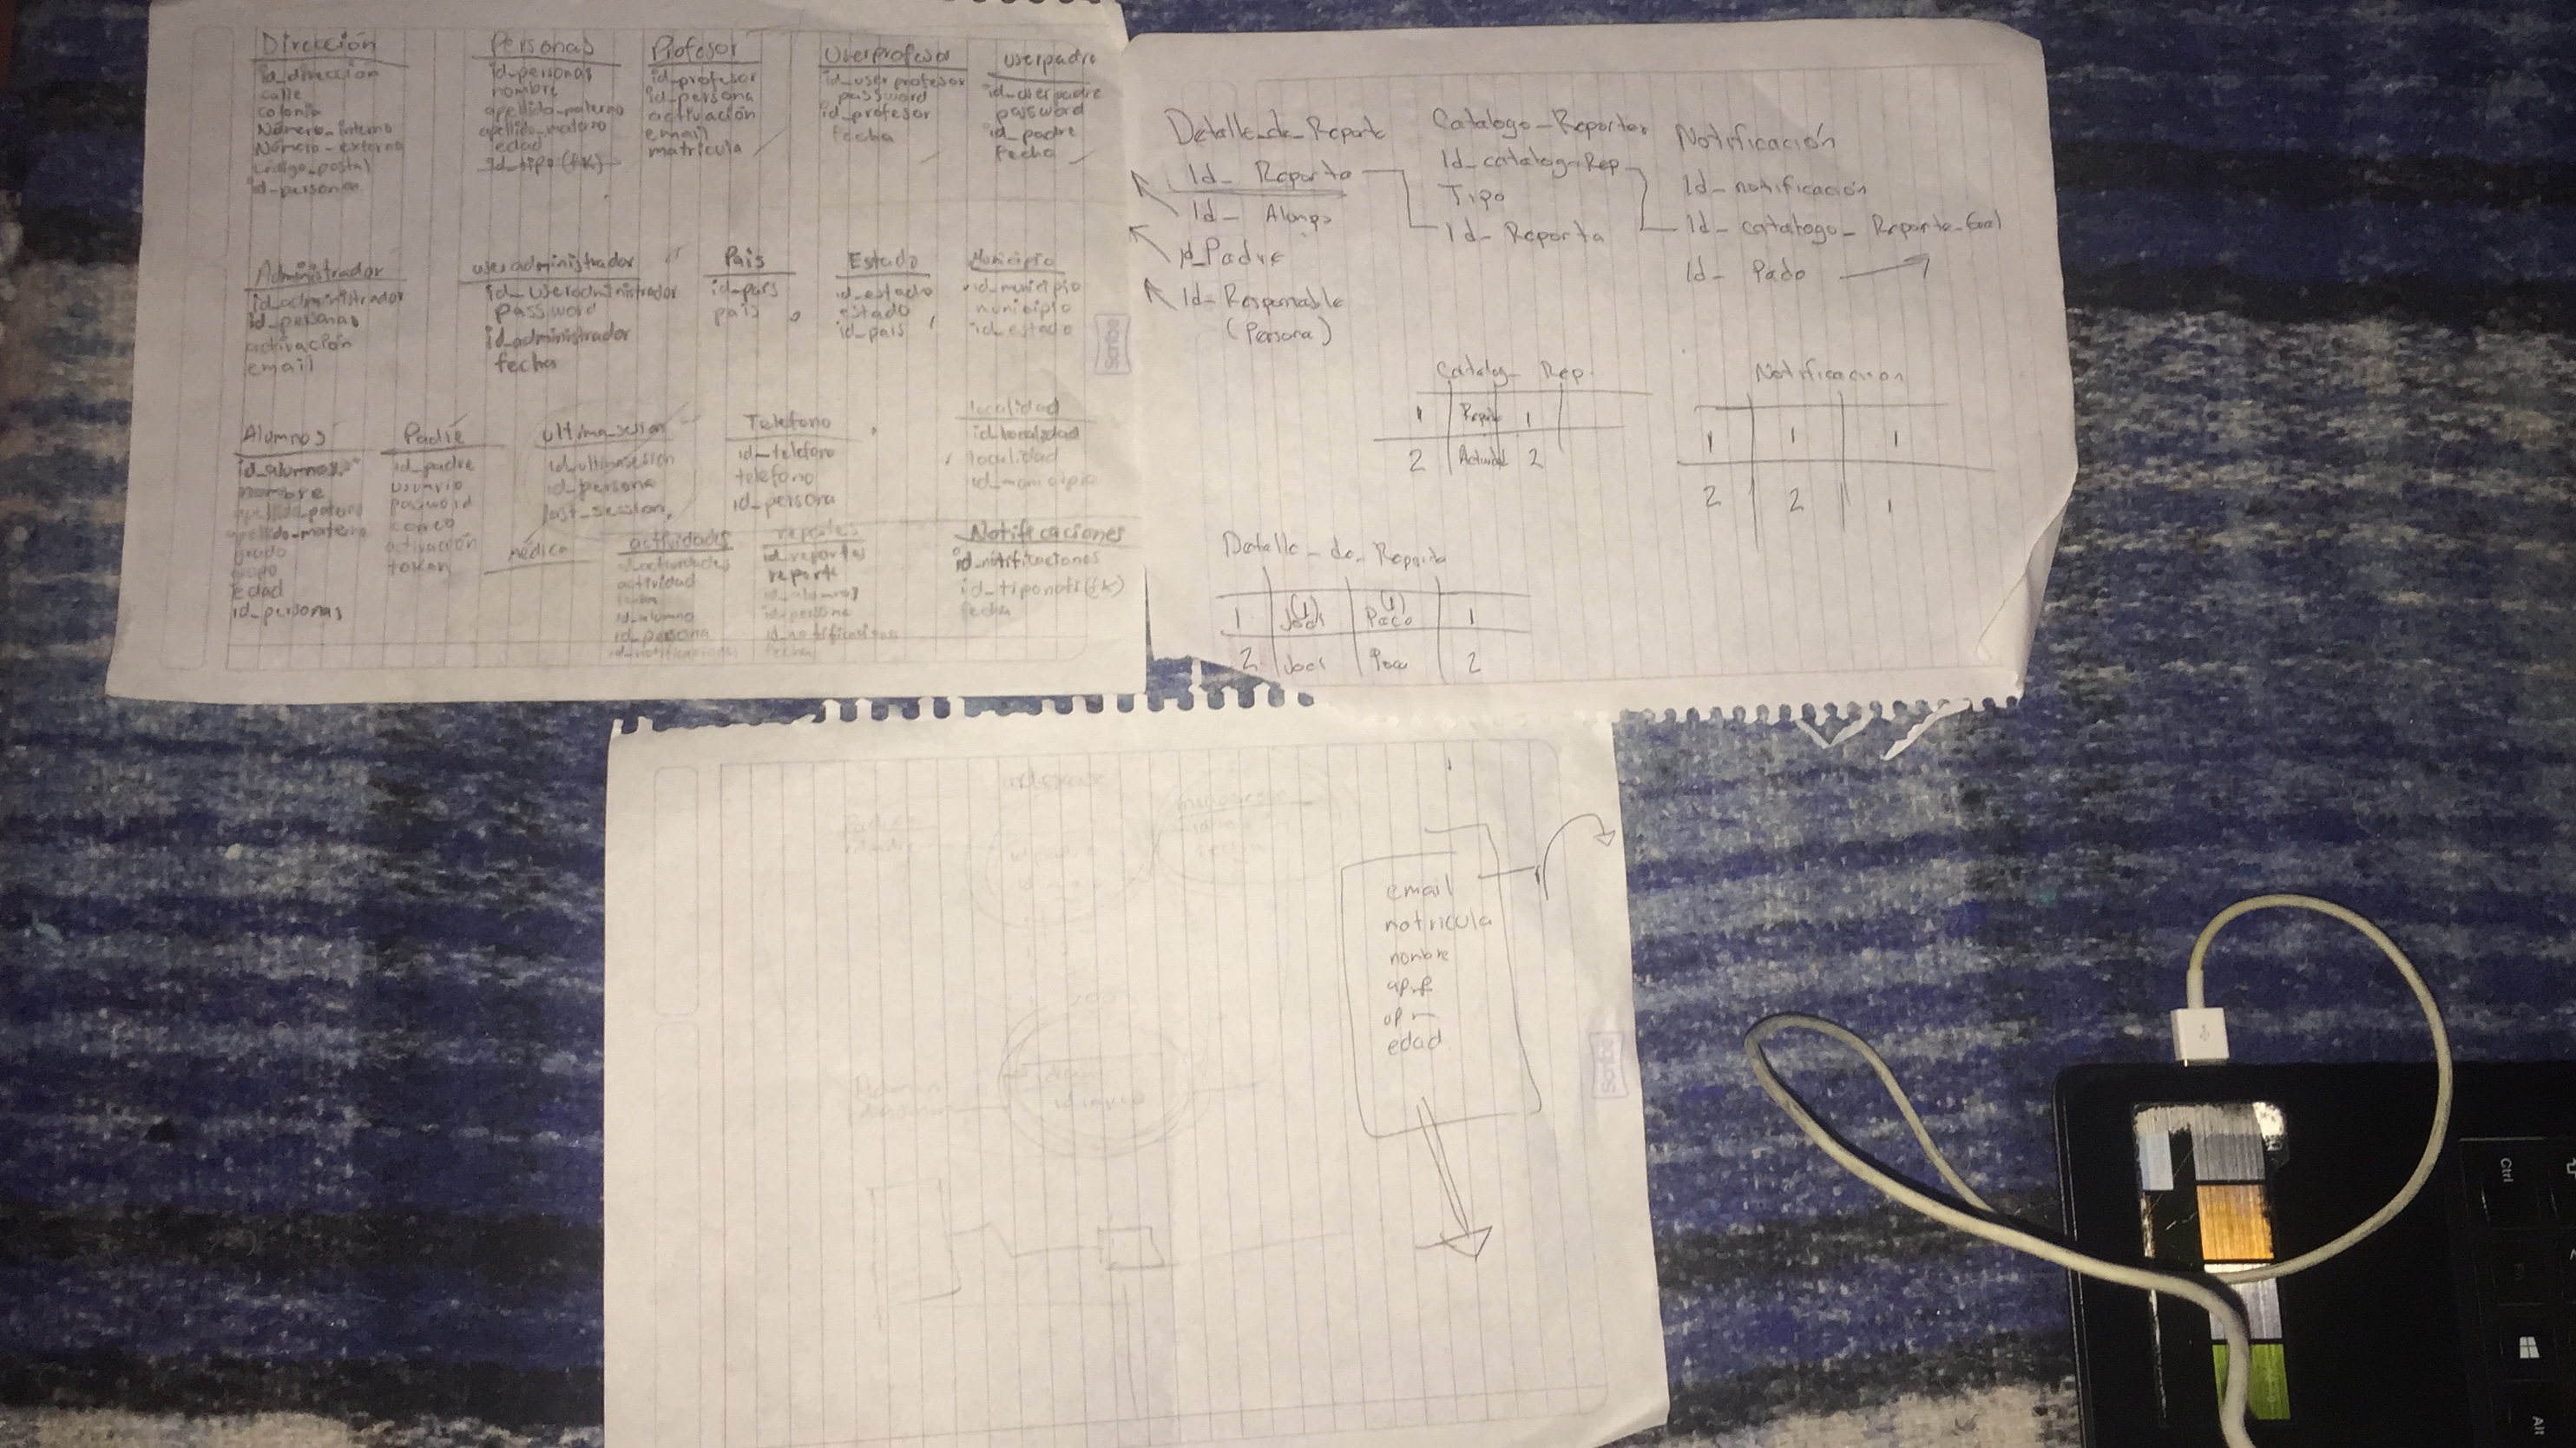 Dirección
id_dirección
calle
colonia
Número_interno
Número_externo
código_postal
id_personas
Personas
id_personas
nombre
apellido_paterno
apellido_materno
edad
id_tipo(FK)
Profesor
id_profesor
id_persona
activación
email
matricula
Userprofesor
id_userprofesor
password
id_profesor
fecha
userpadre
id_userpadre
password
id_padre
fecha
Administrador
id_administrador
id_personas
activación
email
useradministrador
id_useradministrador
password
id_administrador
fecha
País
id_pais
país
Estado
id_estado
estado
id_pais
Municipio
id_municipio
municipio
id_estado
Alumnos
id_alumnos
nombre
apellido_paterno
apellido_materno
grado
grupo
edad
id_personas
Padre
id_padre
usuario
password
correo
activación
token
médico
ultima_sesion
id_ultimasesion
id_persona
last_session
Telefono
id_telefono
telefono
id_persona
localidad
id_localidad
localidad
id_municipio
actividades
id_actividades
actividad
fecha
id_alumno
id_persona
id_notificaciones
reportes
id_reportes
reporte
id_alumnos
id_persona
id_notificaciones
fecha
Notificaciones
id_notificaciones
id_tiponoti(FK)
fecha
Detalle_de_Reporte
Id_Reporte
Id_Alumno
Id_Padre
Id_Responsable
(Persona)
Catalogo_Reportes
Id_catalogoRep
Tipo
Id_Reporte
Notificación
Id_notificación
Id_catalogo_Reporte_Gral
Id_Padre
Catalg_Rep.
1 Reporte 1
2 Actividad 2
Notificacion
1 1 1
2 2 1
Detalle_de_Reporte
(1) (1)
1 Jodi Paco 1
2 Paco 2
email
matricula
nombre
ap.p
ap m
edad
Scribe
Scribe
Ctrl
Alt